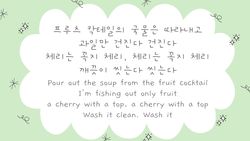 프루츠 칵테일의 국물은 따라내고
과일만 건진다 건진다
체리는 꼭지 체리, 체리는 꼭지 체리
깨끗이 씻는다 씻는다
Pour out the soup from the fruit cocktail
I'm fishing out only fruit
a cherry with a top, a cherry with a top
Wash it clean. Wash it